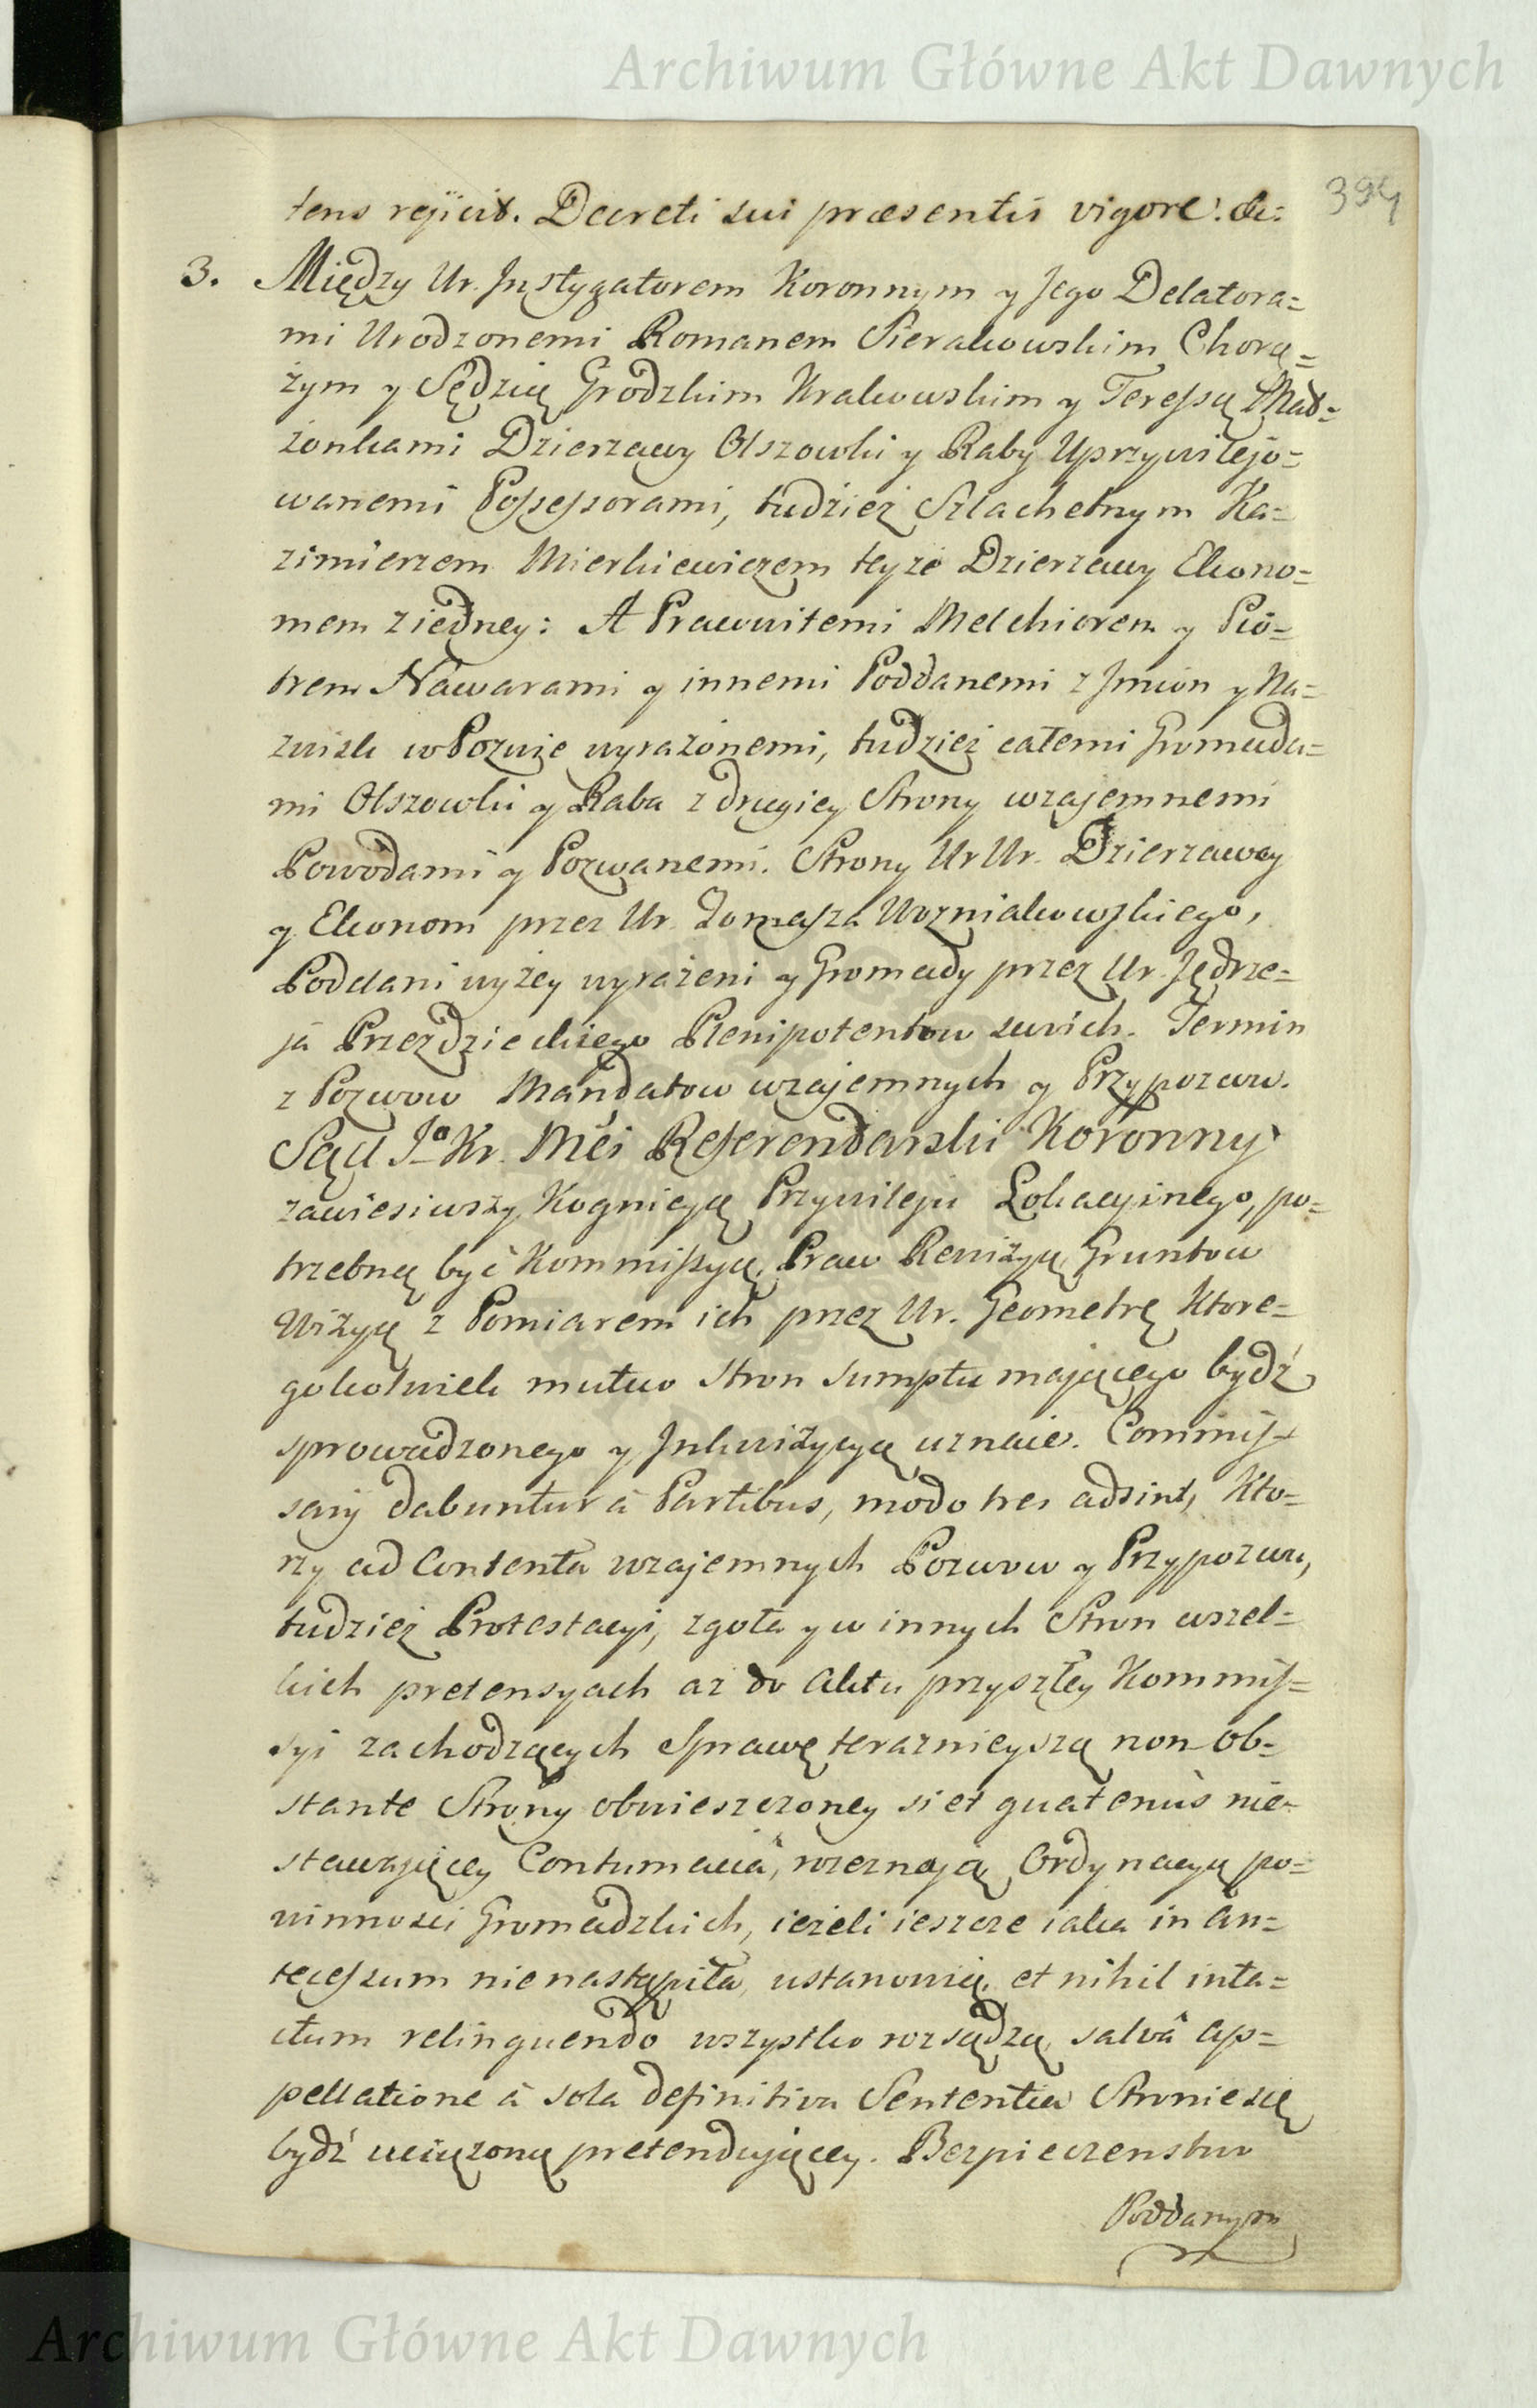 Archiwum Główne Akt Dawnych
394
tens rejicit. Decreti sui præsentis vigore. &c:
3. Między Ur. Instygatorem Koronnym y Jego Delatora=
mi Urodzonemi Romanem Sierakowskim Chorą=
żym y Sędzią Grodzkim Krakowskim y Teressą Mał=
żonkami Dzierzawy Olszowki y Raby Uprzywilejo=
wanemi Possessorami, tudzież Szlachetnym Ka=
zimierzem Mierkiewiczem teyże Dzierzawy Ekono=
mem z iedney: A Pracowitemi Melchiorem y Pio=
trem Nawarami y innemi Poddanemi z Imion y Na=
zwisk w Pozwie wyrażonemi, tudzież całemi Gromada=
mi Olszowki y Raba z drugiey Strony wzajemnemi
Powodami y Pozwanemi. Strony Ur Ur. Dzierzawcy
y Ekonom przez Ur. Tomasza Wozniakowskiego,
Poddani wyżey wyrażeni y Gromady przez Ur. Jędrze=
ja Przezdzieckiego Plenipotentow swoich. Termin
z Pozwow Mandatow wzajemnych y Przypozwu.
Sąd Jo Kr. Mci Referendarski Koronny
zawiesiwszy Kognicyą Przywileju Lokacyinego, po=
trzebną być Kommissyą, Praw Rewizyą, Gruntow
Wizyą z Pomiarem ich przez Ur. Geometrę Ktore=
gokolwiek mutuo stron sumptu mającego bydź
sprowadzonego y Inkwizycyą uznaie. Commis=
sarij dabuntur à Partibus, modo tres adsint, Kto=
rzy ad Contenta wzajemnych Pozwow y Przypozwu,
tudzież Protestacyi, zgoła y w innych Stron wszel=
kich pretensyach aż do Aktu przyszłey Kommis=
syi zachodzących Sprawę terazniejszą non ob=
stante Strony obwieszczoney si et quatenùs nie=
stawającey Contumaciâ, rozeznają, Ordynacyą po=
winnosci Gromadzkich, ieżeli ieszcze iaka in an=
tecessum nienastąpiła, ustanowią, et nihil inta=
ctum relinquendo wszystko rozsądzą, salvâ ap=
pellatione à sola definitiva Sententia Stronie się
bydź uciążoną pretendującey. Bezpieczenstwo
Poddanym
Archiwum Główne Akt Dawnych